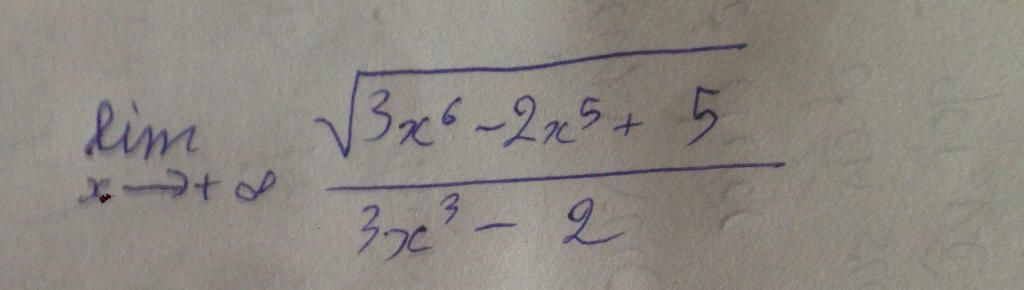 lim x→+∞ √(3x⁶ - 2x⁵ + 5) / (3x³ - 2)